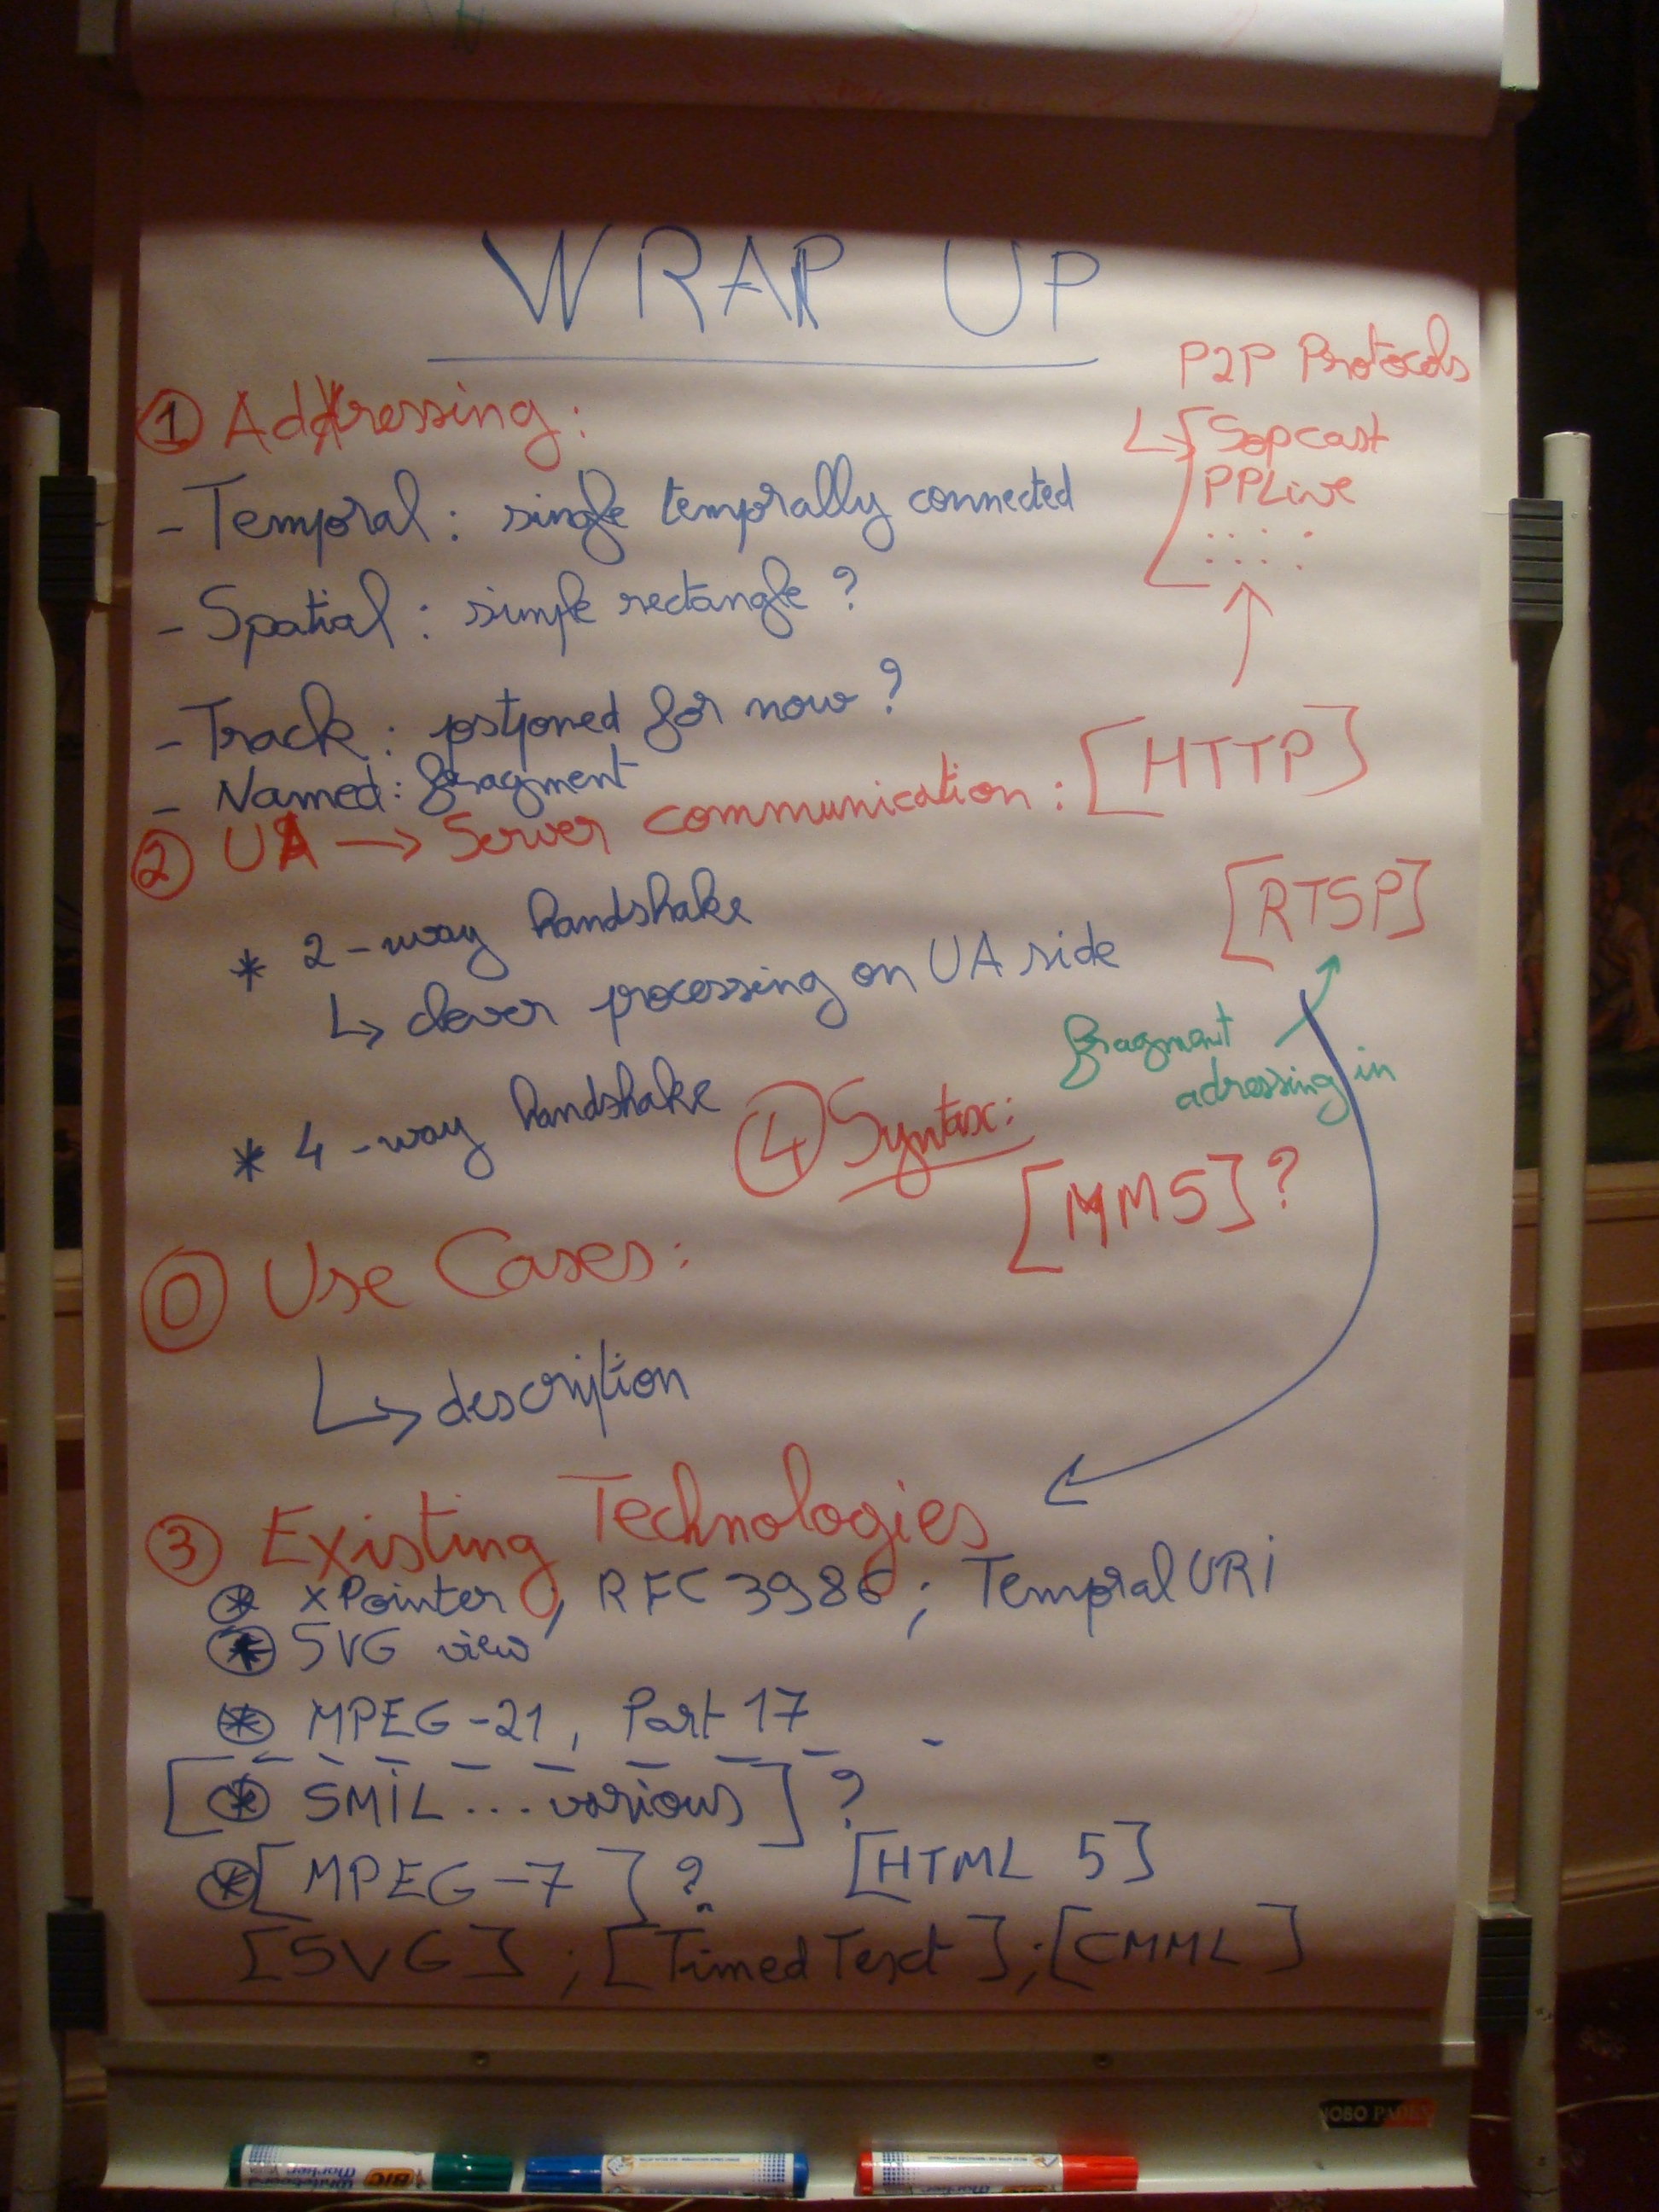 WRAP UP
P2P Protocols
↳ [Sopcast
PPLive
① Addressing:
- Temporal: single temporally connected
- Spatial: simple rectangle?
- Track: postponed for now?
- Named: fragment
② UA → Server communication: [HTTP]
[RTSP]
* 2-way handshake
↳ clever processing on UA side
fragment
adressing in
* 4-way handshake
④ Syntax:
[MMS]?
⓪ Use Cases:
↳ description
③ Existing Technologies
* xPointer; RFC 3986; Temporal URI
* SVG view
* MPEG-21, Part 17
[* SMIL ... various]?
* [MPEG-7]? [HTML 5]
[SVG]; [Timed Text]; [CMML]
NOBO
BIC